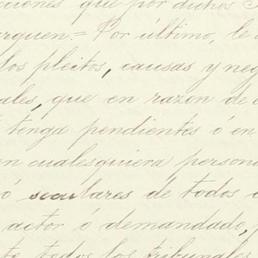 ciones que por dichos
arguen.= Por último, le
los pleitos, causas y neg
ales, que en razon de
tenga pendientes ó en
en cualesquiera person
ó seculares de todos
actor ó demandado,
te todos los tribunales